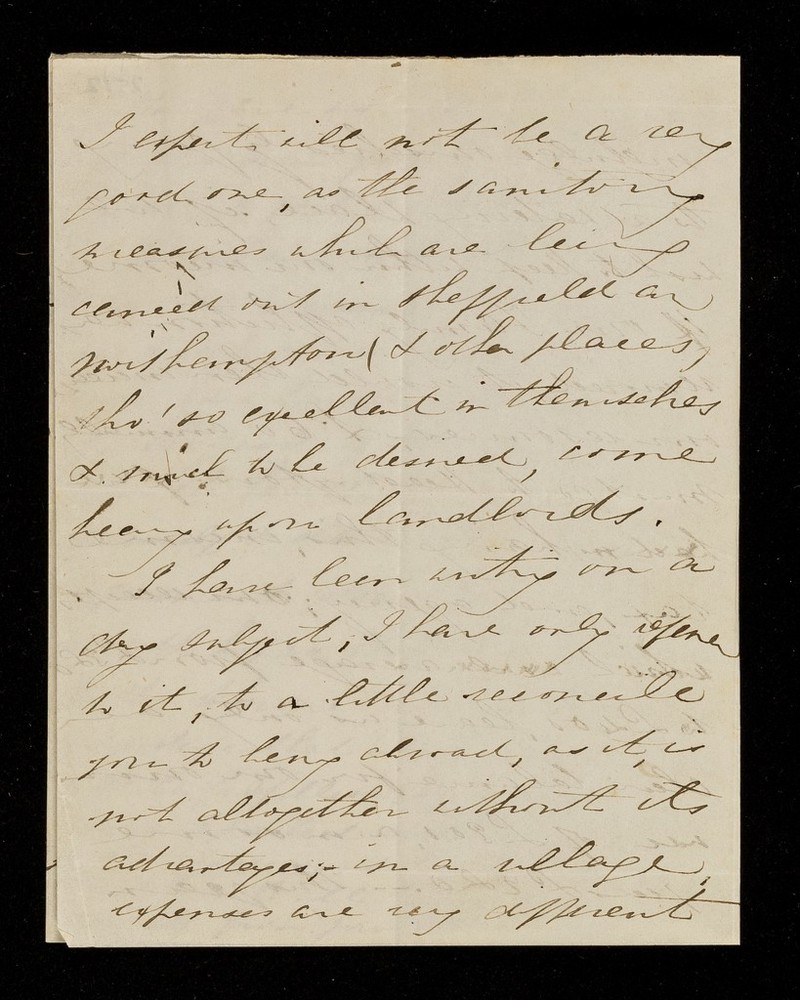 I expect will not be a very
good one, as the sanitory
measures which are being
carried out in Sheffield an
Northampton (& other places,
tho' so excellent in themselves
& much to be desired, come
heavy upon landlords.
I have been writing on a
dry subject, I have only
to it, to a little reconcile
you to being abroad, as it, is
not altogether without its
advantages; - in a village,
expenses are very different